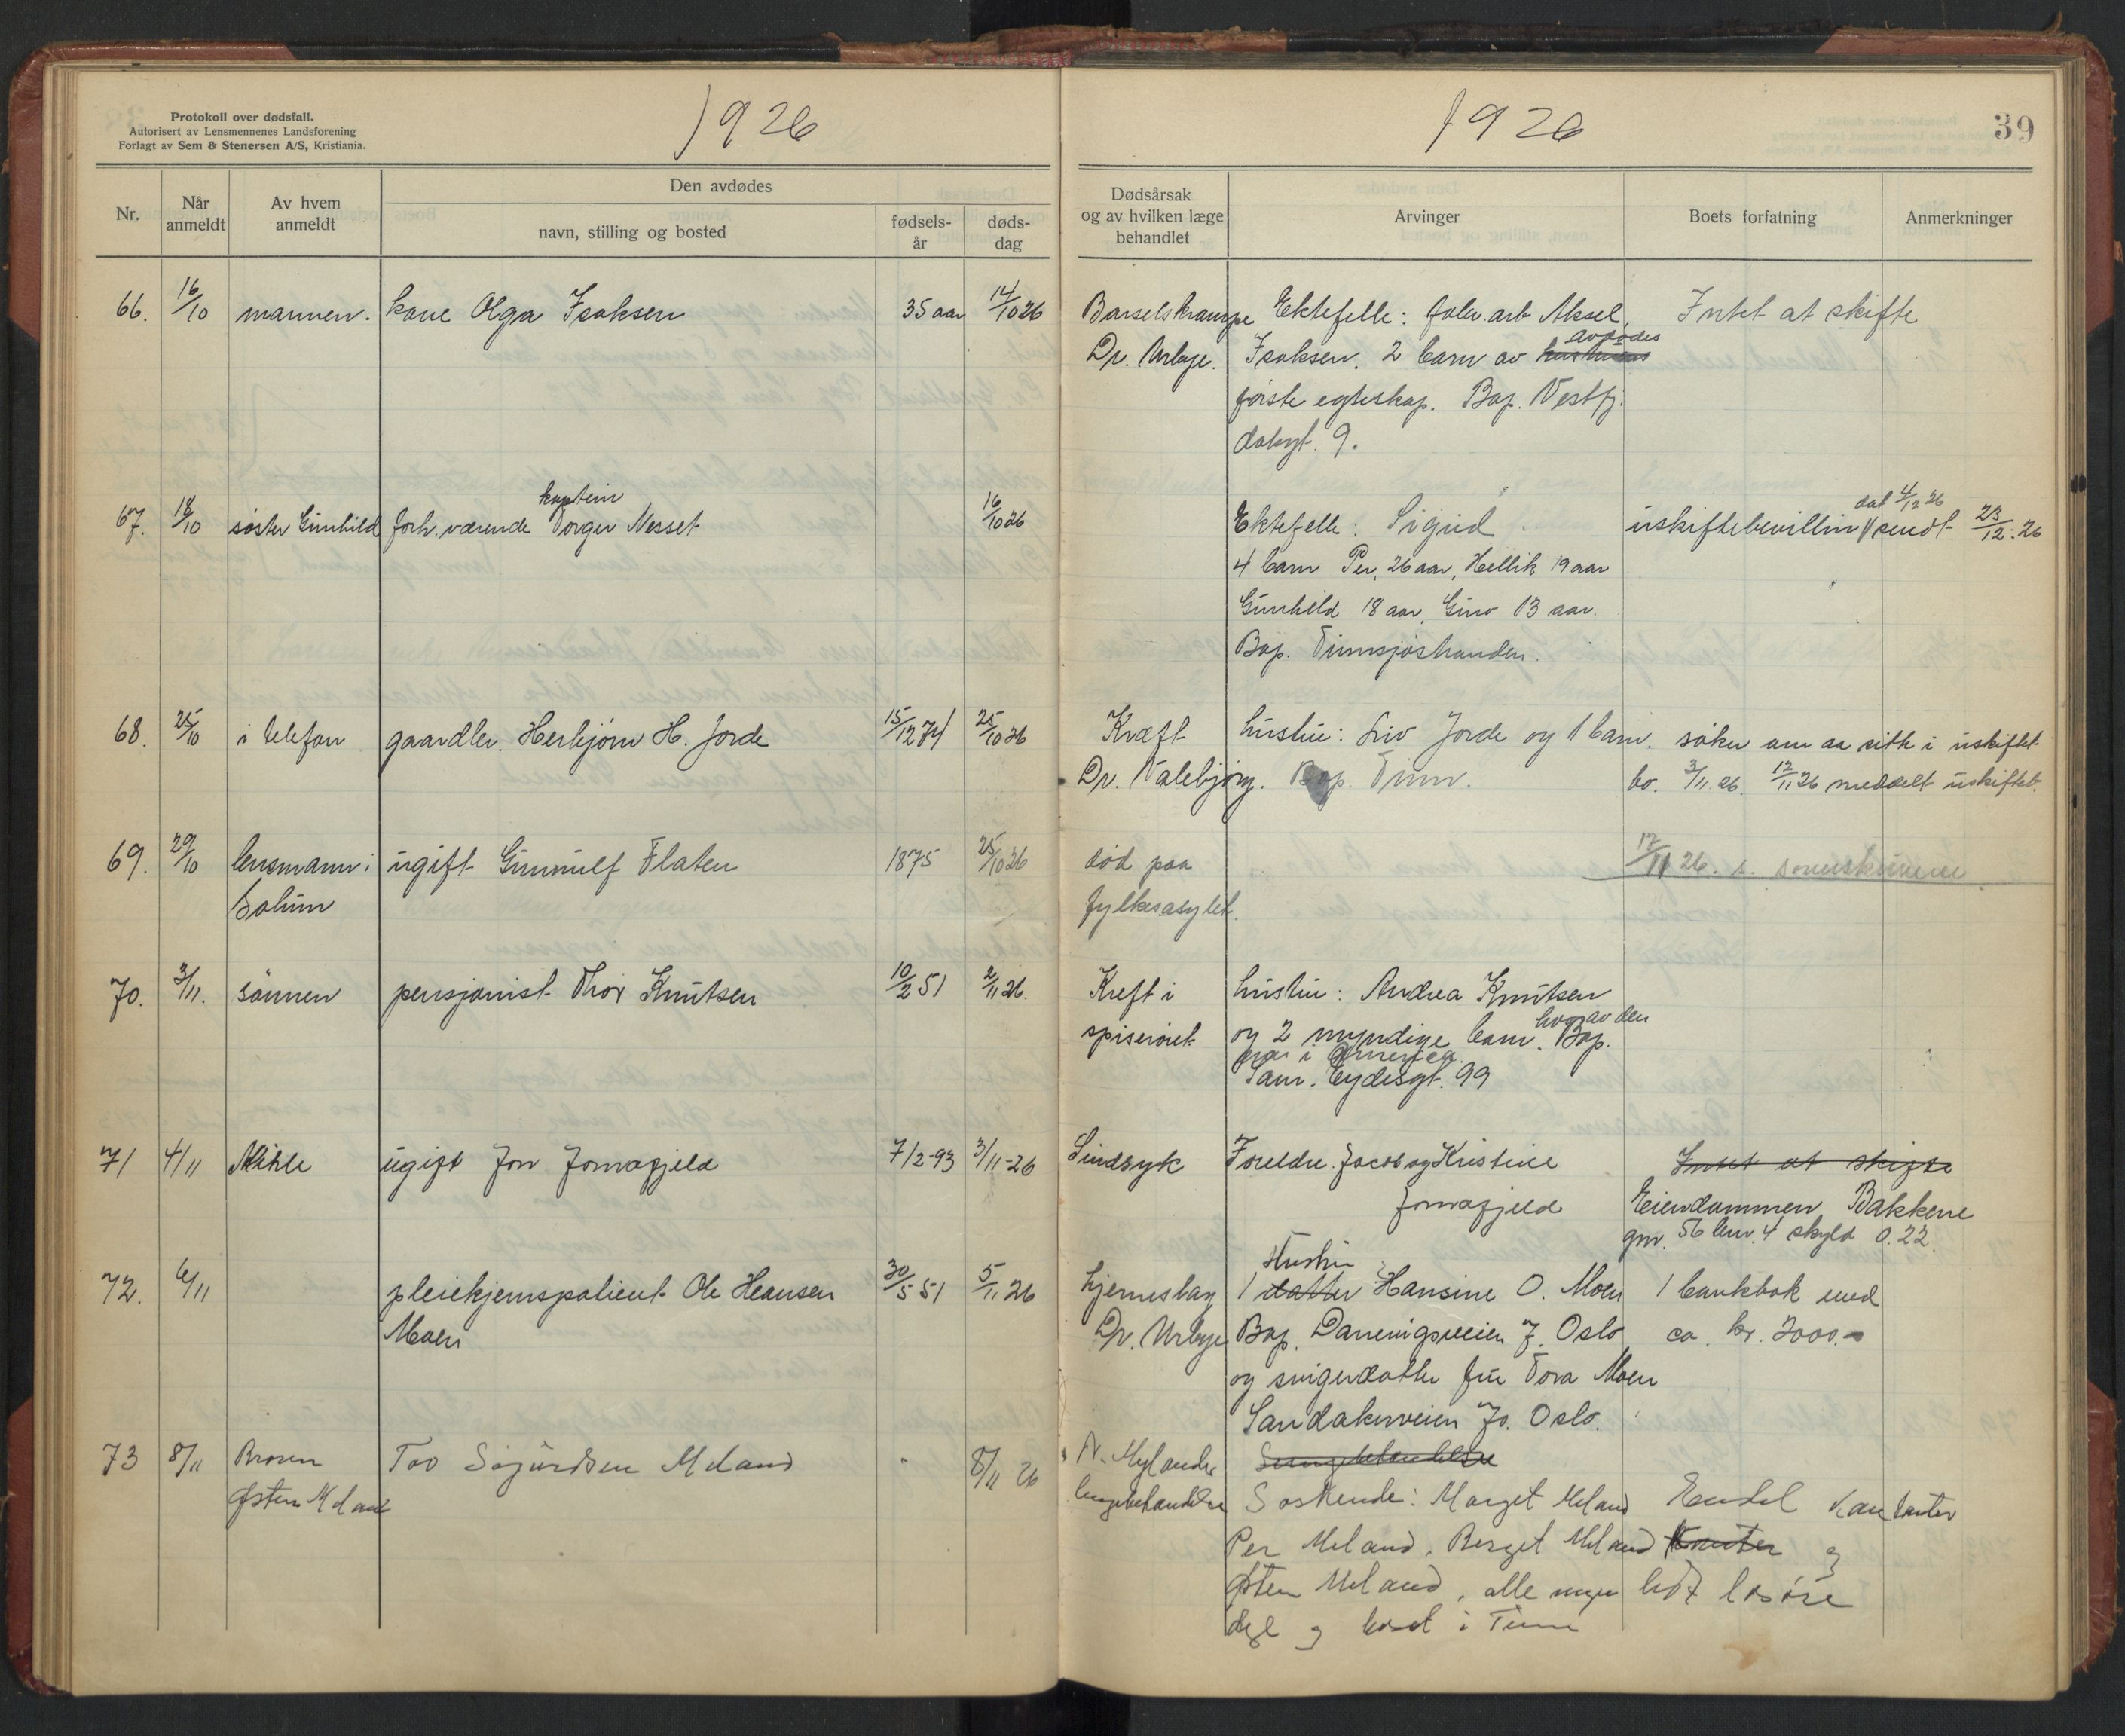 Protokoll over dødsfall.
Autorisert av Lensmennenes Landsforening
Forlagt av Sem & Stenersen A/S, Kristiania.
1926
Nr.
Når anmeldt
Av hvem anmeldt
Den avdødes
navn, stilling og bosted
fødsels-år
døds-dag
1926
39
Dødsårsak og av hvilken læge behandlet
Arvinger
Boets forfatning
Anmerkninger
66. 16/10 mannen. kone Olga Isaksen 35 aar 14/10 26
Barselskrampe Ektefelle: fabr. arb Aksel Intet at skifte
avdødes
Dr. Urbye. Isaksen. 2 barn av hustruens
første egteskap. Bop. Vestfj.
dalsgt. 9.
kaptein
67. 18/10 søster Gunhild forh. værende Torger Nesset 16/10 26
dat 4/12 26
Ektefelle: Sigrid uskiftebevilling sendt 23/12. 26
4 barn Per, 26 aar, Hellik 19 aar
Gunhild 18 aar, Guro 13 aar.
Bop. Tinnsjøstranden.
68. 25/10 i telefon gaardbr. Herbjørn H. Jorde 15/12 74 25/10 26
Kræft hustru: Liv Jorde og 1 barn. søker om aa sitte i uskiftet
Dr. Dalebjørg. Bop. Tinn. bo. 3/11. 26. 12/11 26 meddelt uskiftet.
69. 29/10 lensmann i ugift Gunnulf Flaten 1875 25/10 26
Solum
død paa 12/11 26. s.
fylkesasylet.
70. 3/11. sønnen pensjonist Thor Knutsen 10/2 51 2/11 26.
Kreft i hustru: Andrea Knutsen
hvorav den
spiserøret og 2 myndige barn. Bop.
ene i Amerika.
Sam. Eydesgt. 99
71 4/11 Mihle ugift Jon Jonafjeld 7/2-93 3/11-26
Sindsyk Foreldre. Jacob og Kristine Intet at skifte
Jonafjeld Eiendommen Bakkene
gnr. 56 bnr. 4 skyld 0.22.
72. 6/11 pleiehjemspatient Ole Hansen 30/5 51 5/11 26
Moen
Hustru
hjerneslag 1 datter Hansine O. Moen 1 bankbok med
Dr. Urbye Bop. Danevigsveien 7. Oslo ca. kr. 2000.-
og svigerdatter fru Tora Moen
Sandakerveien 70. Oslo.
73 8/11 Broren Tov Sigurdsen Meland - 8/11 26
Østen Meland
Søskende: Marget Meland Endel kontanter
Per Meland, Berget Meland Konter og
Østen Meland, alle myn lidt løsøre
dige og bosat i Tinn